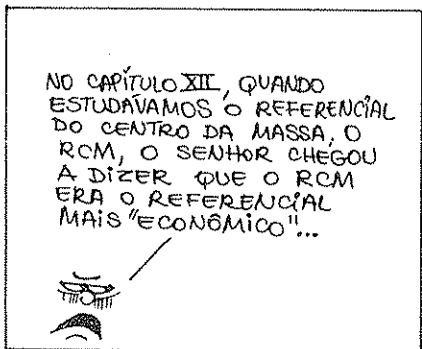 NO CAPÍTULO XII, QUANDO
ESTUDÁVAMOS O REFERENCIAL
DO CENTRO DA MASSA, O
RCM, O SENHOR CHEGOU
A DIZER QUE O RCM
ERA O REFERENCIAL
MAIS "ECONÔMICO"...